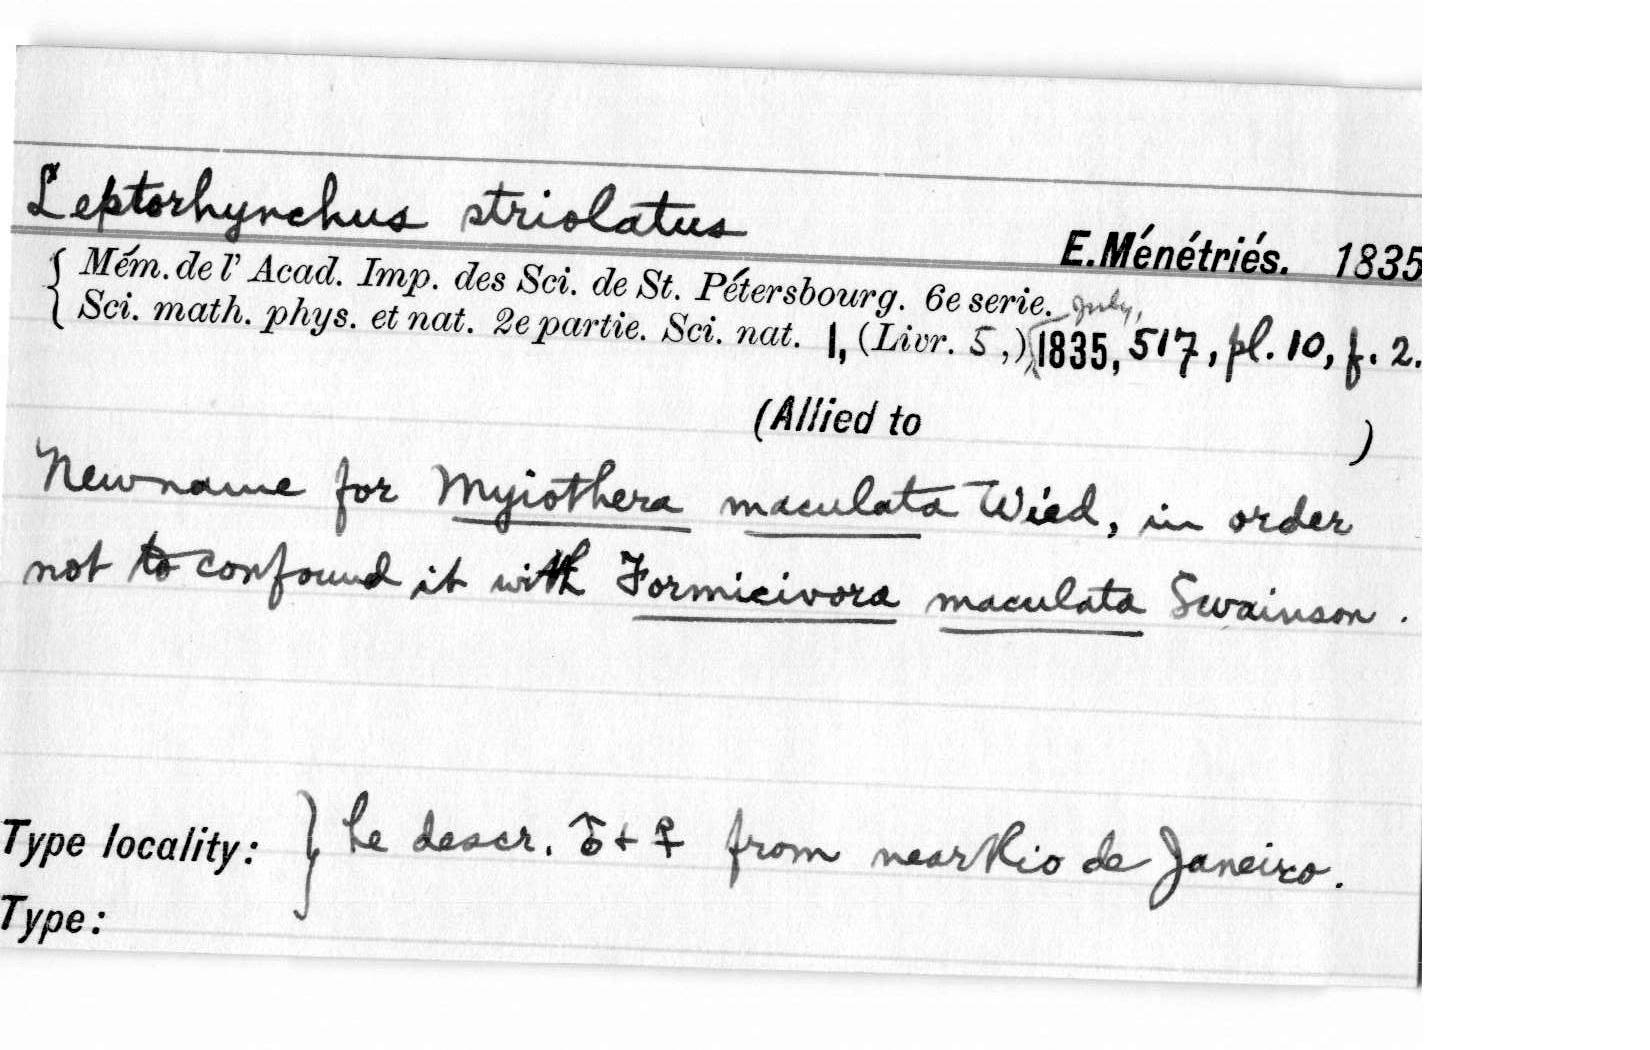 Leptorhynchus striolatus
E. Ménétriés. 1835
Mém. de l' Acad. Imp. des Sci. de St. Pétersbourg. 6e serie.
Sci. math. phys. et nat. 2e partie. Sci. nat. 1, (Livr. 5,) July, 1835, 517, pl. 10, f. 2.
(Allied to )
New name for Myiothera maculata Wied, in order
not to confound it with Formicivora maculata Swainson.
Type locality: } he descr. ♂ + ♀ from near Rio de Janeiro.
Type: